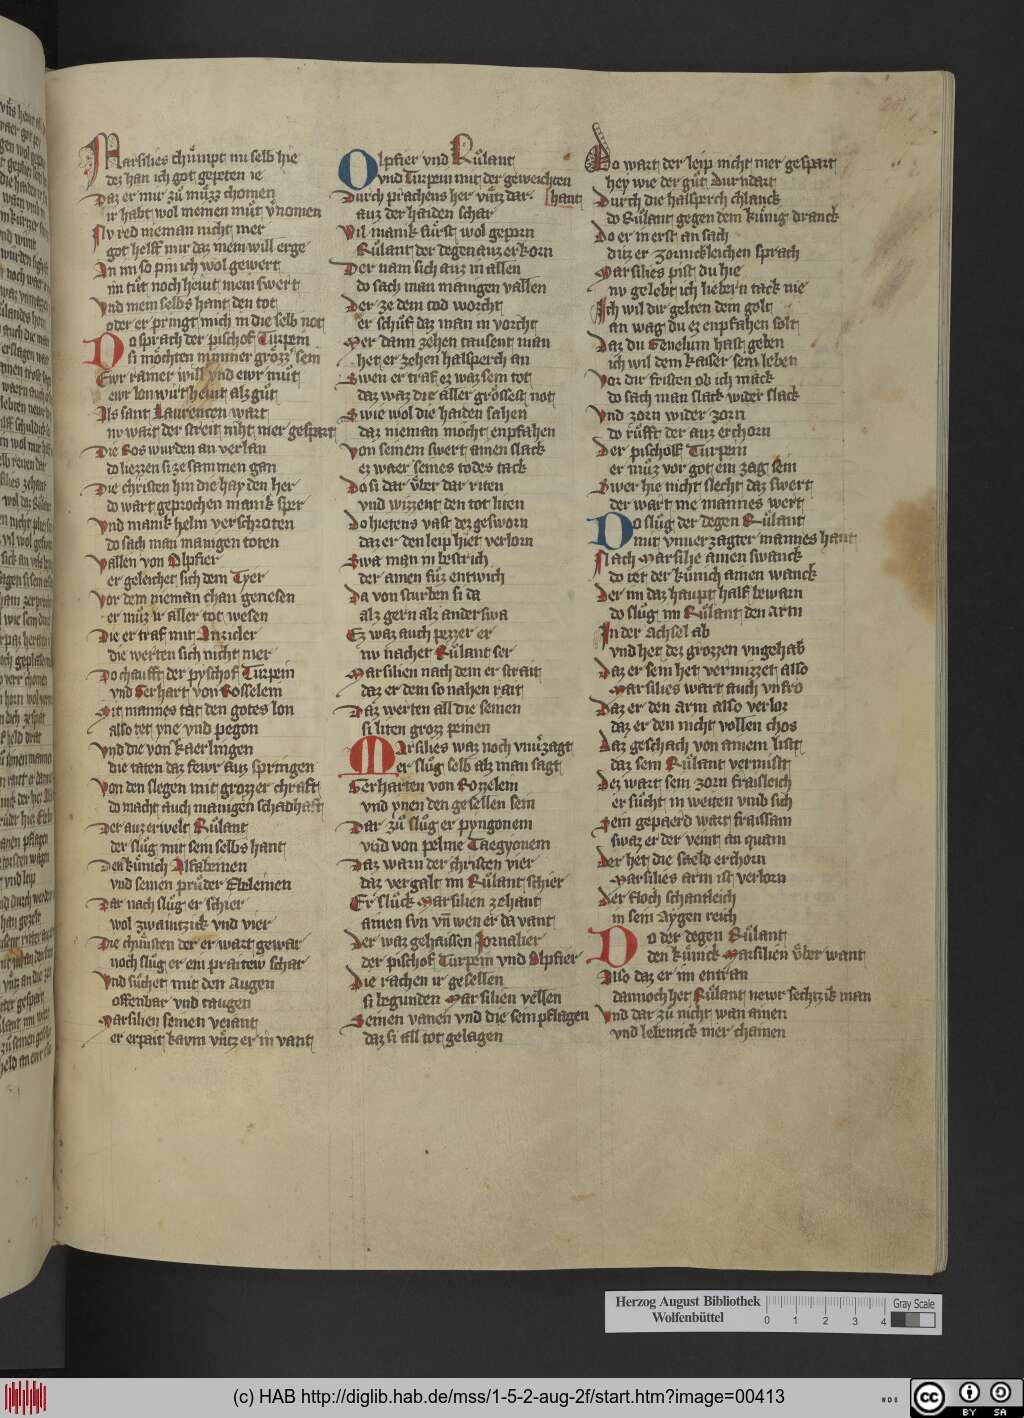 Marsilies chumpt nu selb hie
dez han ich got gepeten ie
Daz er mir zů můzz chomen
ir habt wol meinen můt v̓nomen
Nv red nieman nicht mer
got helff mir daz mein will erge
An im so pin ich wol gewert
im tůt noch hewt mein swert
Vnd mein selbs hant den tot
oder er pringt mich in die selb not
Do sprach der pischof Turpein
si mochten nimmer grözz sein
Ewr ramer will vnd ewr můt
ewr lon wirt hewt alz gůt
Als sant Laurencen wart
nv wart der streit niht mer gespart
Die Ros wurden an verlan
do liezzen si ze sammen gan
Die christen hin die hayden her
do wart geprochen manik sper
Vnd manik helm verschroten
do sach man manigen toten
Vallen von Olpfier
er geleichet sich dem Tyer
Vor dem nieman chan genesen
er můz ir aller tot wesen
Die er traf mit Anzicler
die werten sich nicht mer
Do chaufft der pyschof Turpein
vnd Gerhart von Rosselem
Mit mannes tat den gotes lon
also tet yne vnd pegon
Vnd die von kaerlingen
die taten daz fewr auz springen
Von den slegen mit grozzer chraft
do macht auch manigen schadhaft
Der auz erwelt Růlant
der slůg mit sein selbs hant
Den kůnich Alfabemen
vnd seinen průder Ebelemen
Dar nach slůg er schier
wol zwaintzick vnd vier
Die chůnsten der er wart gewar
noch slůg er ein praitew schar
Vnd sůchet mit den Augen
offenbar vnd taugen
Marsilien seinen veiant
er erpait kavm vntz er in vant
Olpfier vnd Růlant
vnd Turpein mit der geweichten
hant
Durch prachens her vntz dar
auz der haiden schar
Vil manik fůrst wol geporn
Růlant der degen auz erkorn
Der nam sich auz in allen
do sach man manigen vallen
Der ze dem tod worcht
er schůf daz man in vorcht
Mer dann zehen tausent man
het er zehen halsperch an
Swen er traf ez waz sein tot
daz waz die aller grössest not
Swie wol die haiden sahen
daz nieman mocht enpfahen
Von seinem swert ainen slack
ez waer seines todes tack
Do si dar v̓ber dar riten
vnd wizzent den tot liten
Do hietens vast dez gesworn
daz er den leip hiet verlorn
Swa man in bestrich
der ainen fůz entwich
Da von sturben si da
alz gern alz anderswa
Ez waz auch pezzer er
nv nachet Růlant ser
Marsilien nach dem er strait
daz er dem so nahen rait
Daz werten all die seinen
si liten groz peinen
Marsilies waz noch vnuerzagt
er slůg selb alz man sagt
Gerharten von Rozzelem
vnd ynen den gesellen sein
Dar zů slůg er pyngonem
vnd von pelme Taegyonem
Daz warn der christen vier
daz vergalt im Růlant schier
Er slůck Marsilien zehant
ainen svn vn̄ wen er da vant
Der waz gehaissen Jornalier
der pischof Turpein vnd Olpfier
Die rachen ir gesellen
si begunden Marsilien vellen
Seinen vanen vnd die sein pflagen
daz si all tot gelagen
Do wart der leip nicht mer gespart
hey wie der gůt Durndart
Durch die halsperch chlanck
do Růlant gegen dem kůnig dranck
Do er in erst an sach
auz er zornickleichen sprach
Marsilies pist du hie
nv gelebt ich liebern tack nie
Ich wil dir gelten dein golt
an wag du ez enpfahen solt
Daz du Genelum hast geben
ich wil dem kaiser sein leben
Vor dir fristen ob ich mack
do sach man slack wider slack
Vnd zorn wider zorn
do růfft der auz erchorn
Der pischolf Turpein
er můz vor got ein zag sein
Swer hie nicht slecht daz swert
der wart nie mannes wert
Do slůg der degen Růlant
mit vnuerzagter mannes hant
Nach Marsilie ainen swanck
do tet der kůnich ainen wanck
Der im daz haupt half bewarn
do slůg im Růlant den arm
In der Achsel ab
vnd het dez grozzen vngehab
Daz er sein het vermizzet also
Marsilies wart auch vnfro
Daz er den arm also verlor
daz er den nicht vollen chos
Daz geschach von ainem list
daz sein Růlant vermist
Dez wart sein zorn fraisleich
er sůcht in weiten vmb sich
Sein gepaerd wart fraissam
swaz er der veint an quam
Der het die saeld erchorn
Marsilies arm ist verlorn
Der floch schantleich
in sein Aygen reich
Do der degen Růlant
den kůnick Marsilien v̓ber want
Also daz er im entran
dannoch het Růlant newr sechtzik man
Vnd dar zů nicht wan ainen
vnd lebentick mer chainen
Herzog August Bibliothek
Wolfenbüttel
0 1 2 3 4
Gray Scale
(c) HAB http://diglib.hab.de/mss/1-5-2-aug-2f/start.htm?image=00413
WDB
cc BY SA